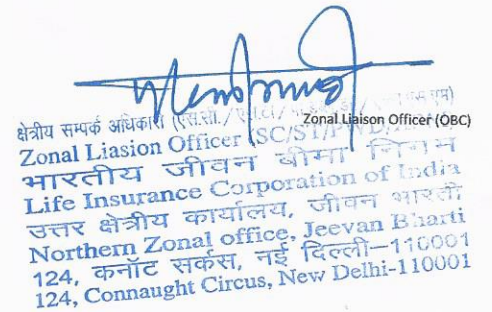 Zonal Liaison Officer (OBC)
क्षेत्रीय सम्पर्क अधिकारी (एस.सी./
Zonal Liasion Officer (SC/ST/PWD/
भारतीय जीवन बीमा निगम
Life Insurance Corporation of India
उत्तर क्षेत्रीय कार्यालय, जीवन भारती
Northern Zonal office, Jeevan Bharti
124, कनॉट सर्कस, नई दिल्ली–110001
124, Connaught Circus, New Delhi-110001